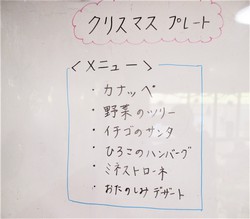 クリスマス プレート
<メニュー>
・カナッペ
・野菜のツリー
・イチゴのサンタ
・ひろこのハンバーグ
・ミネストローネ
・おたのしみ デザート